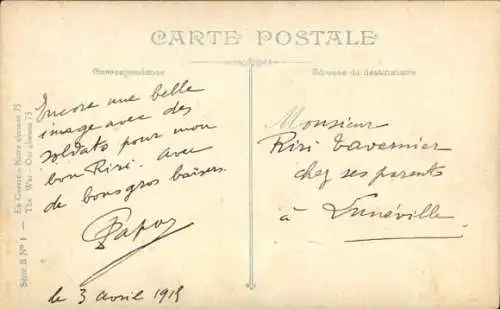 CARTE POSTALE
Correspondance
Adresse du destinataire
Encore une belle
image avec des
soldats pour mon
bon Riri. avec
de bons gros baisers.
le 3 avril 1915
Monsieur
Riri Tavernier
chez ses parents
à Lunéville
Série B No 1 — En Guerre - Notre glorieux 75
The War - Our glorious 75